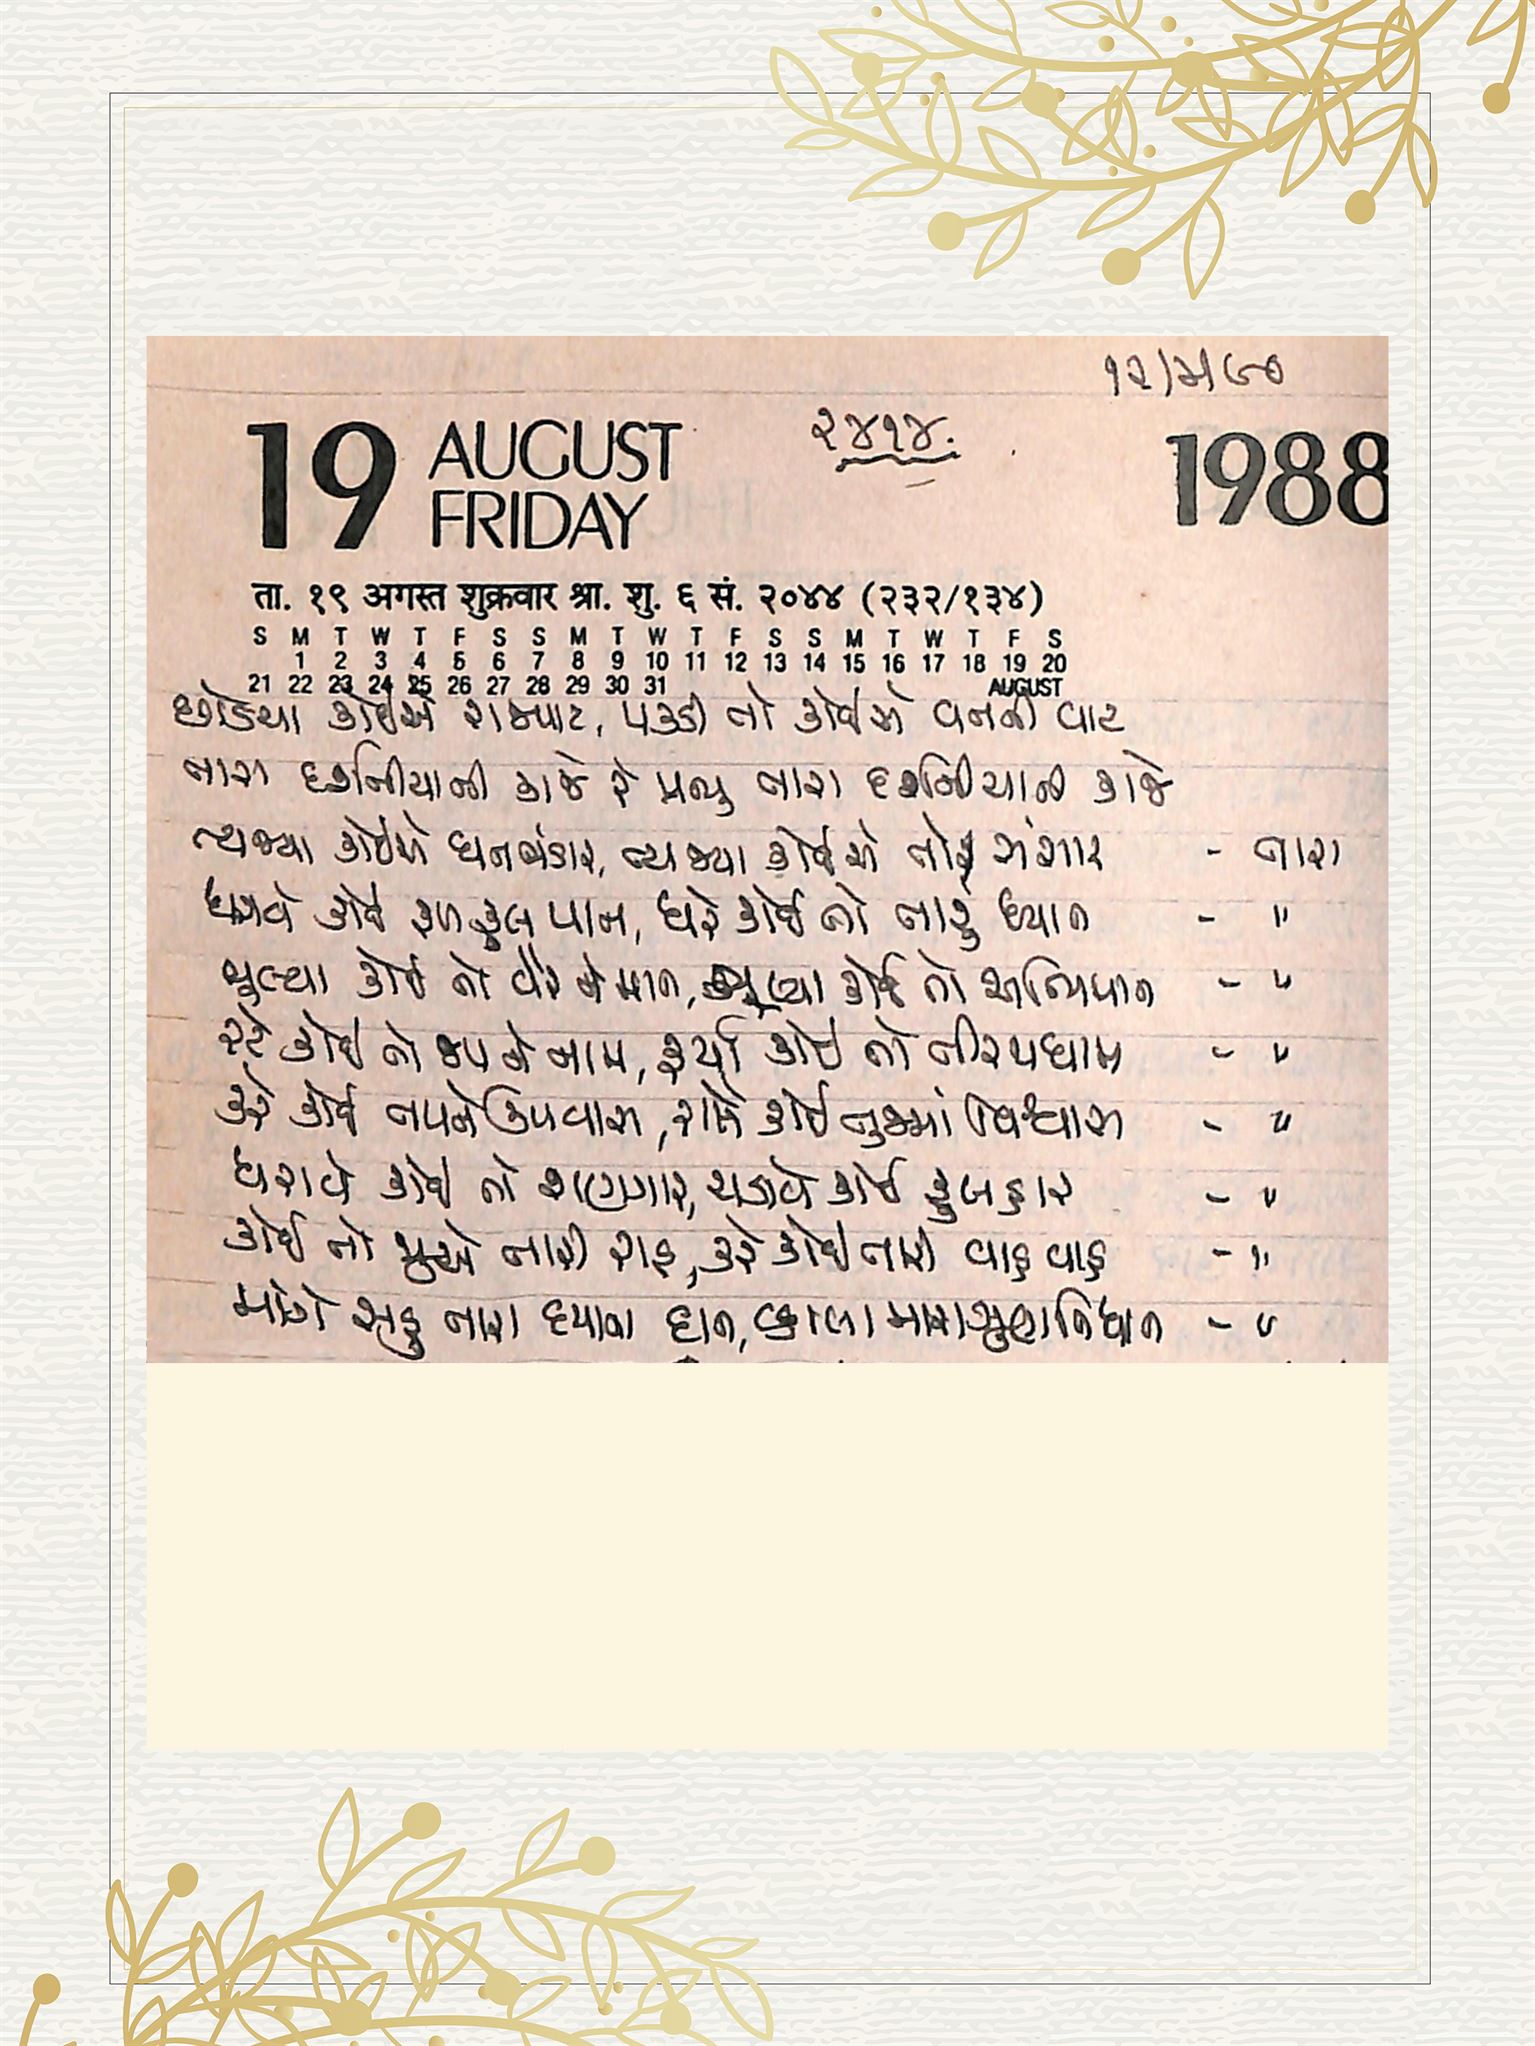 ૧૨/૫/૯૦
૨૪૧૪.
19 AUGUST FRIDAY 1988
ता. १९ अगस्त शुक्रवार श्रा. शु. ६ सं. २०४४ (२३२/१३४)
S M T W T F S S M T W T F S S M T W T F S
1 2 3 4 5 6 7 8 9 10 11 12 13 14 15 16 17 18 19 20
21 22 23 24 25 26 27 28 29 30 31 AUGUST
છોડયા કોઈએ રાજપાટ, પકડી તો કોઈએ વનની વાટ
તારા દર્શનિયાની કાજે રે પ્રભુ તારા દર્શનિયાની કાજે
ત્યજ્યા કોઈએ ધનભંડાર, ત્યજ્યા કોઈએ તો સંસાર - તારા
ધરાવે કોઈ ફળ ફુલ પાન, ધરે કોઈ તો તારું ધ્યાન - "
ભૂલ્યા કોઈ તો વૈર ને માન, ભૂલ્યા કોઈ તો અભિમાન - "
રટે કોઈ તો જપ ને નામ, ફર્યા કોઈ તો તીરથધામ - "
કરે કોઈ તપને ઉપવાસ, રાખે કોઈ તુજમાં વિશ્વાસ - "
ધરાવે કોઈ તો શણગાર, ચડાવે કોઈ ફુલહાર - "
કોઈ તો જુએ તારી રાહ, કરે કોઈ તારી વાહ વાહ - "
માંગે સહુ તારા દયાના દાન, વ્હાલા મારા ગુણનિધાન - "